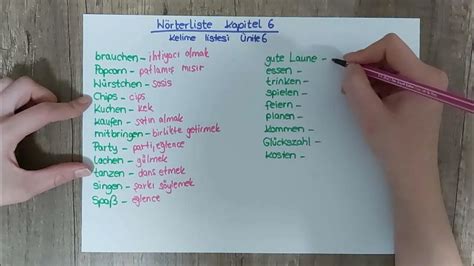 Wörterliste Kapitel 6
Kelime listesi Ünite 6
brauchen – ihtiyacı olmak
Popcorn – patlamış mısır
Würstchen – sosis
Chips – cips
Kuchen – kek
kaufen – satın almak
mitbringen – birlikte getirmek
Party – parti, eğlence
lachen – gülmek
tanzen – dans etmek
singen – şarkı söylemek
Spaß – eğlence
gute Laune –
essen –
trinken –
spielen –
feiern –
planen –
kommen –
Glückszahl –
kosten –